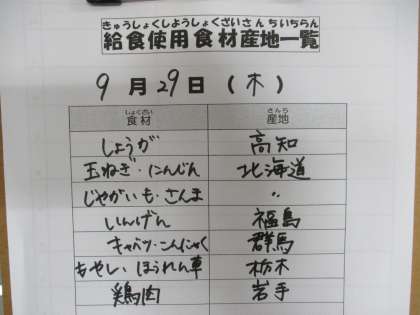 きゅうしょくしようしょくざいさんちいちらん
給食使用食材産地一覧
9月29日(木)
しょくざい さんち
食材 産地
しょうが 高知
玉ねぎ・にんじん 北海道
じゃがいも・さんま 〃
いんげん 福島
キャベツ・こんにゃく 群馬
もやし・ほうれん草 栃木
鶏肉 岩手